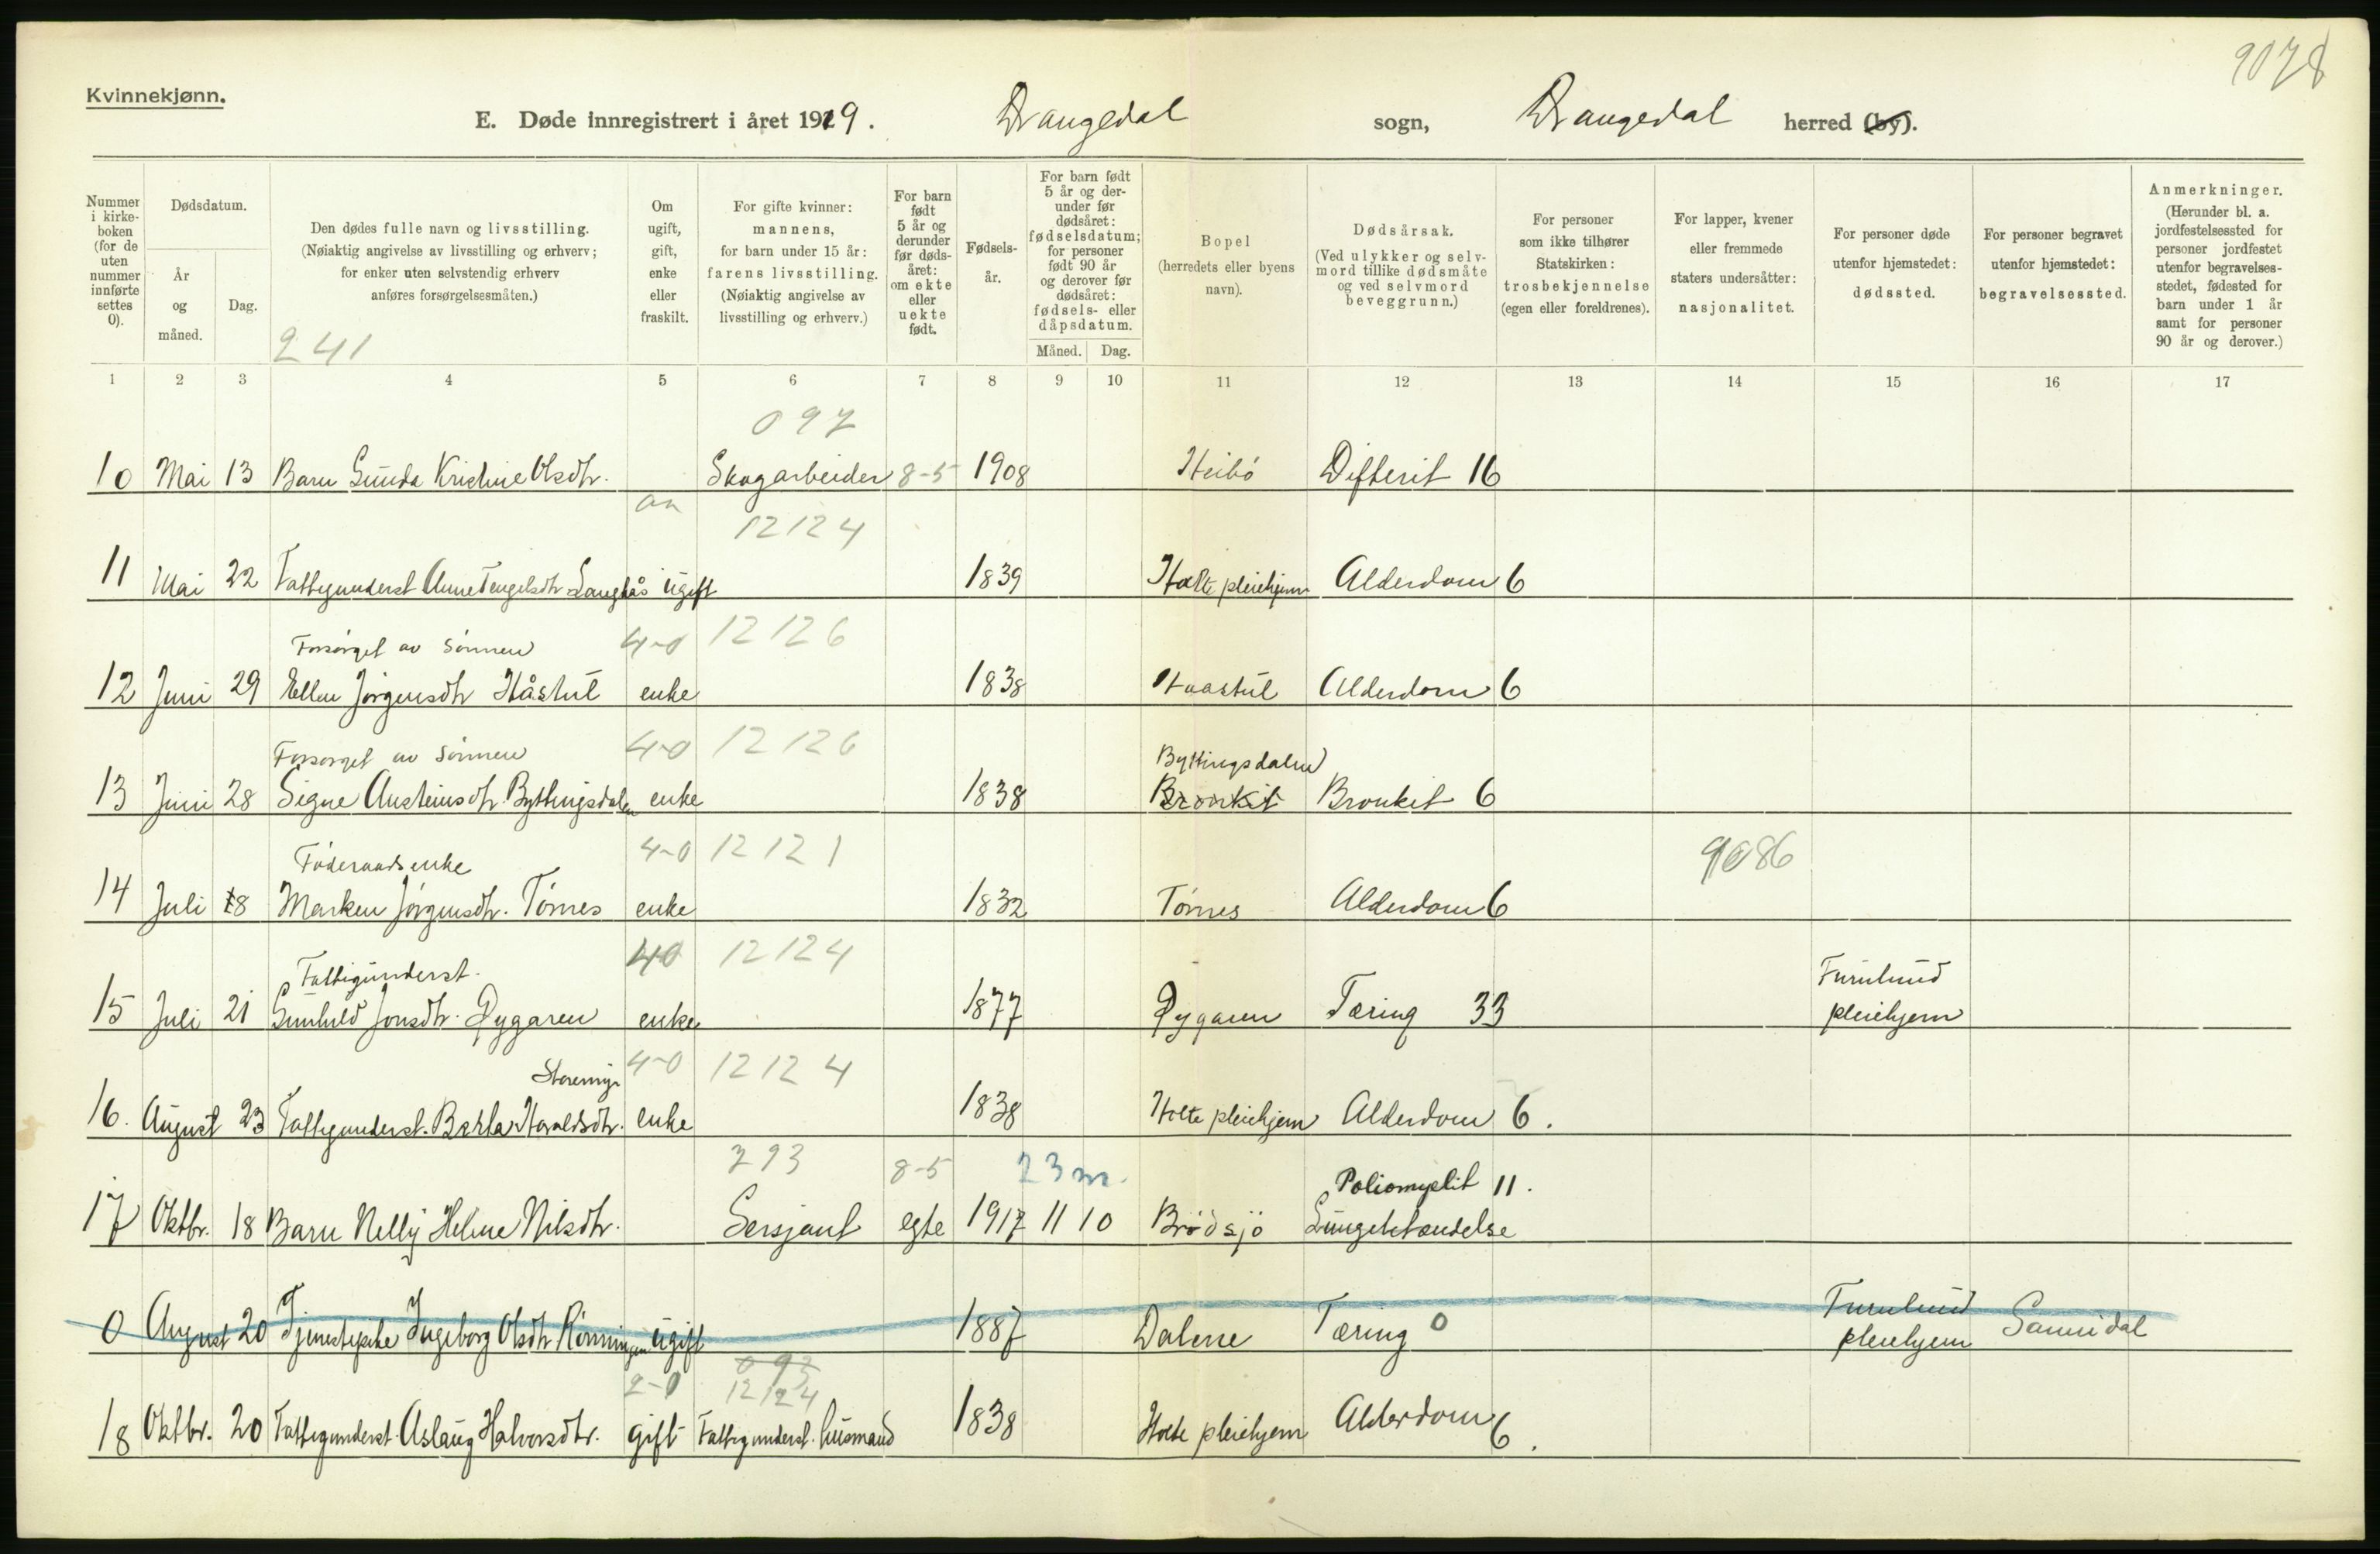 9078
Kvinnekjønn.
E. Døde innregistrert i året 1919. Drangedal sogn, Drangedal herred (by).
Nummer i kirkeboken (for de uten nummer innførte settes 0).
Dødsdatum.
År og måned.
Dag.
Den dødes fulle navn og livsstilling. (Nøiaktig angivelse av livsstilling og erhverv; for enker uten selvstendig erhverv anføres forsørgelsesmåten.)
241
Om ugift, gift, enke eller fraskilt.
For gifte kvinner: mannens, for barn under 15 år: farens livsstilling. (Nøiaktig angivelse av livsstilling og erhverv.)
For barn født 5 år og derunder før dødsåret: om ekte eller uekte født.
Fødselsår.
For barn født 5 år og derunder før dødsåret: fødselsdatum; for personer født 90 år og derover før dødsåret: fødsels- eller dåpsdatum.
Måned. Dag.
Bopel (herredets eller byens navn).
Dødsårsak. (Ved ulykker og selvmord tillike dødsmåte og ved selvmord beveggrunn.)
For personer som ikke tilhører Statskirken: trosbekjennelse (egen eller foreldrenes).
For lapper, kvener eller fremmede staters undersåtter: nasjonalitet.
For personer døde utenfor hjemstedet: dødssted.
For personer begravet utenfor hjemstedet: begravelsessted.
Anmerkninger. (Herunder bl. a. jordfestelsessted for personer jordfestet utenfor begravelsesstedet, fødested for barn under 1 år samt for personer 90 år og derover.)
1 2 3 4 5 6 7 8 9 10 11 12 13 14 15 16 17
097
10 Mai 13 Barn Gunda Kristine Olsdtr. Skogarbeider 8-5 1908 Heibö Difterit 16
12124
11 Mai 22 Fattigunderst Anne Tengelsdtr Langkås ugift 1839 Holte pleiehjem Alderdom 6
Forsørget av sönnen 4-0 12126
12 Juni 29 Ellen Jörgensdtr Håstul enke 1838 Haastul Alderdom 6
Forsørget av sönnen 4-0 12126 Byttingsdalen
13 Juni 28 Signe Austeinsdtr. Byttingsdalen enke 1838 Bronkit Bronkit 6
Föderaadsenke 4-0 12121 9086
14 Juli 18 Marken Jörgensdtr. Törnes enke 1832 Törnes Alderdom 6
Fattigunderst. 40 12124 Furulund
15 Juli 21 Gunhild Jonsdtr. Øygaren enke 1877 Øygaren Tæring 33 pleiehjem
Storemyr 4-0 12124
16. August 23 Fattigunderst. Berta Haraldsdtr. enke 1838 Holte pleiehjem Alderdom 6.
293 8-5 23 m. Poliomyelit 11.
17 Oktbr. 18 Barn Nelly Helene Nilsdtr. Sersjant egte 1917 11 10 Brödsjö Lungebetændelse
Furulund
0 August 20 Tjenestepike Ingeborg Olsdtr Rönningen ugift 1887 Dalene Tæring 0 pleiehjem Sannidal
2-0 093 12124
18 Oktbr. 20 Fattigunderst. Aslaug Halvorsdtr. gift Fattigunderst. husmand 1838 Holte pleiehjem Alderdom 6.